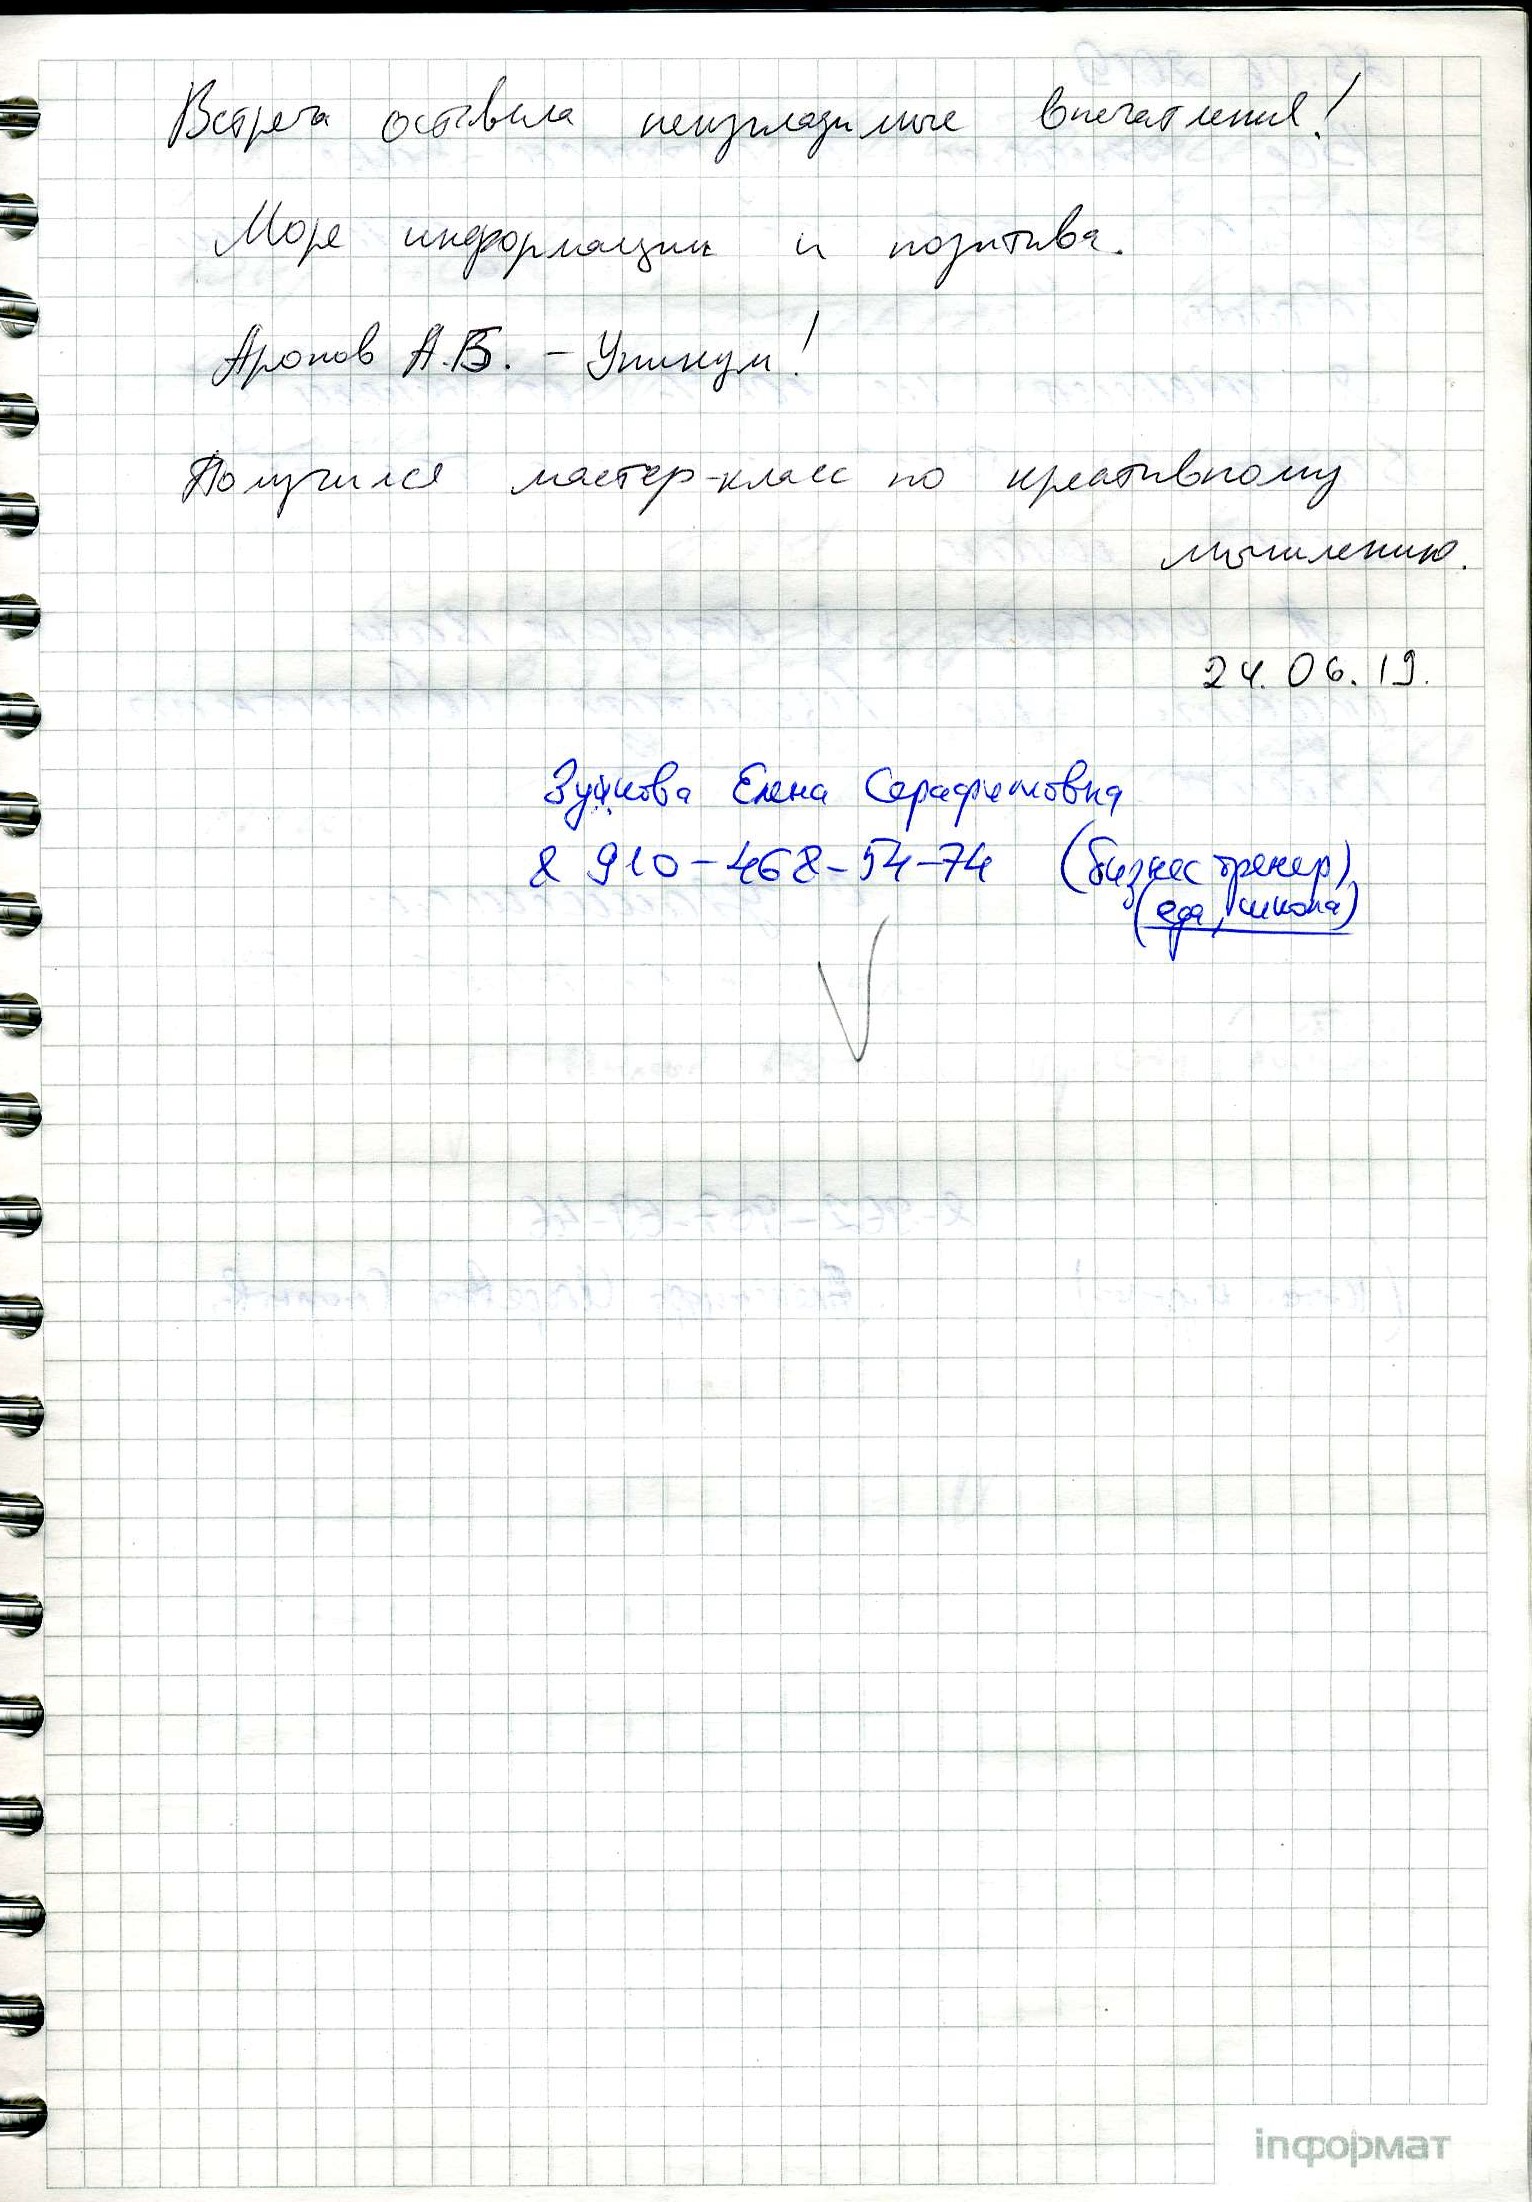 Встреча оставила неизгладимые впечатления!
Море информации и позитива.
Аронов А.В. – Уникум!
Получился мастер-класс по креативному
мышлению.
24.06.19.
Елена Серафимовна
8 910-468-54-74 (бизнес тренер)
(еда, школа)
inформат